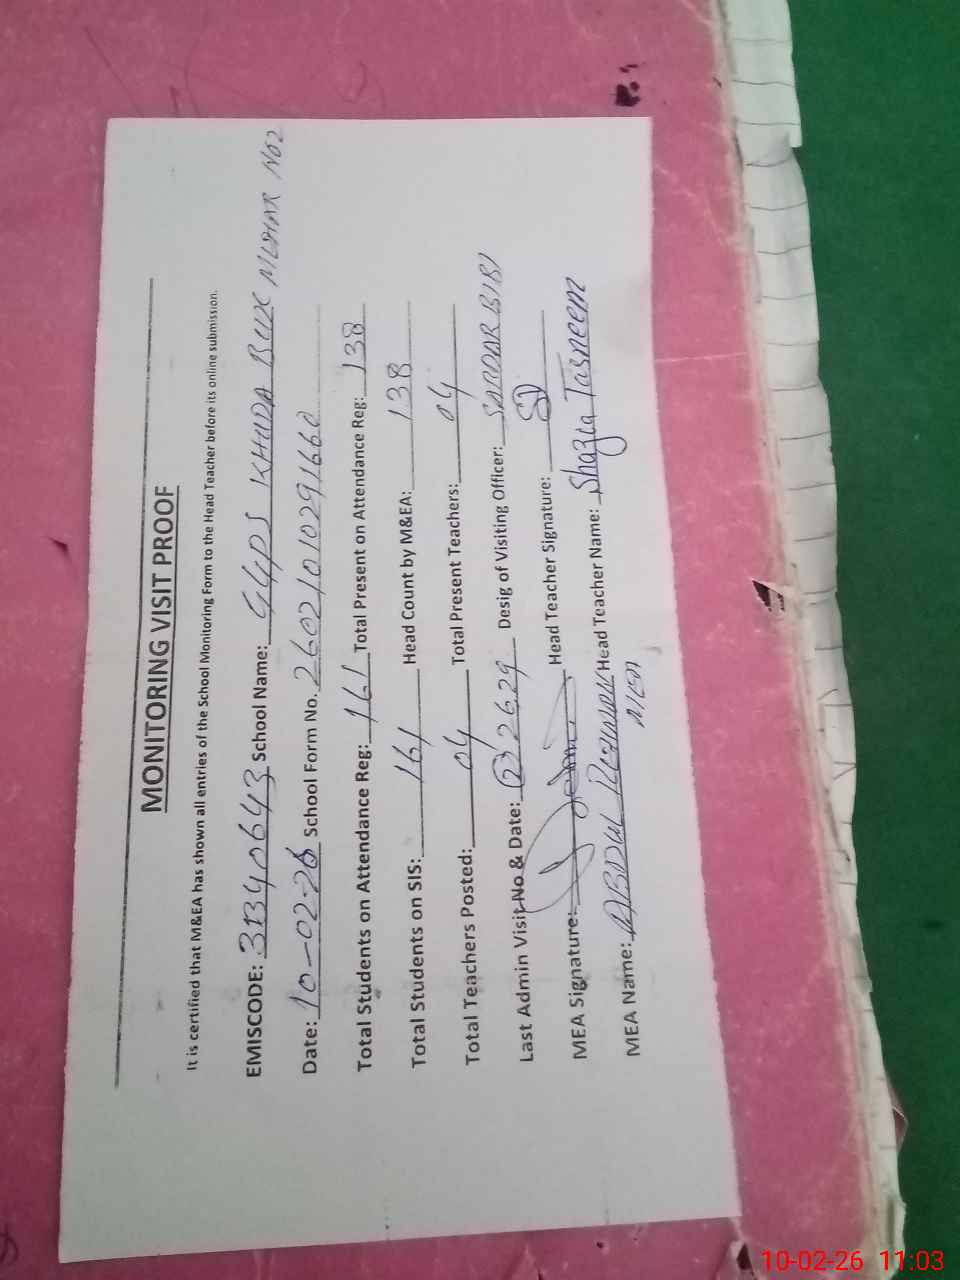 MONITORING VISIT PROOF
It is certified that M&EA has shown all entries of the School Monitoring Form to the Head Teacher before its online submission.
EMISCODE: 31340643 School Name: GGPS KHUDA BUX MUHAR NO2
Date: 10-02-26 School Form No. 26021010291660
Total Students on Attendance Reg: 161 Total Present on Attendance Reg: 138
Total Students on SIS: 161 Head Count by M&EA: 138
Total Teachers Posted: 04 Total Present Teachers: 04
Last Admin Visit No & Date: (2) 26.29 Desig of Visiting Officer: SARDAR BIBI
MEA Signature: Head Teacher Signature:
MEA Name: ABDUL REHMAN Head Teacher Name: Shazia Tasneem
10-02-26 11:03